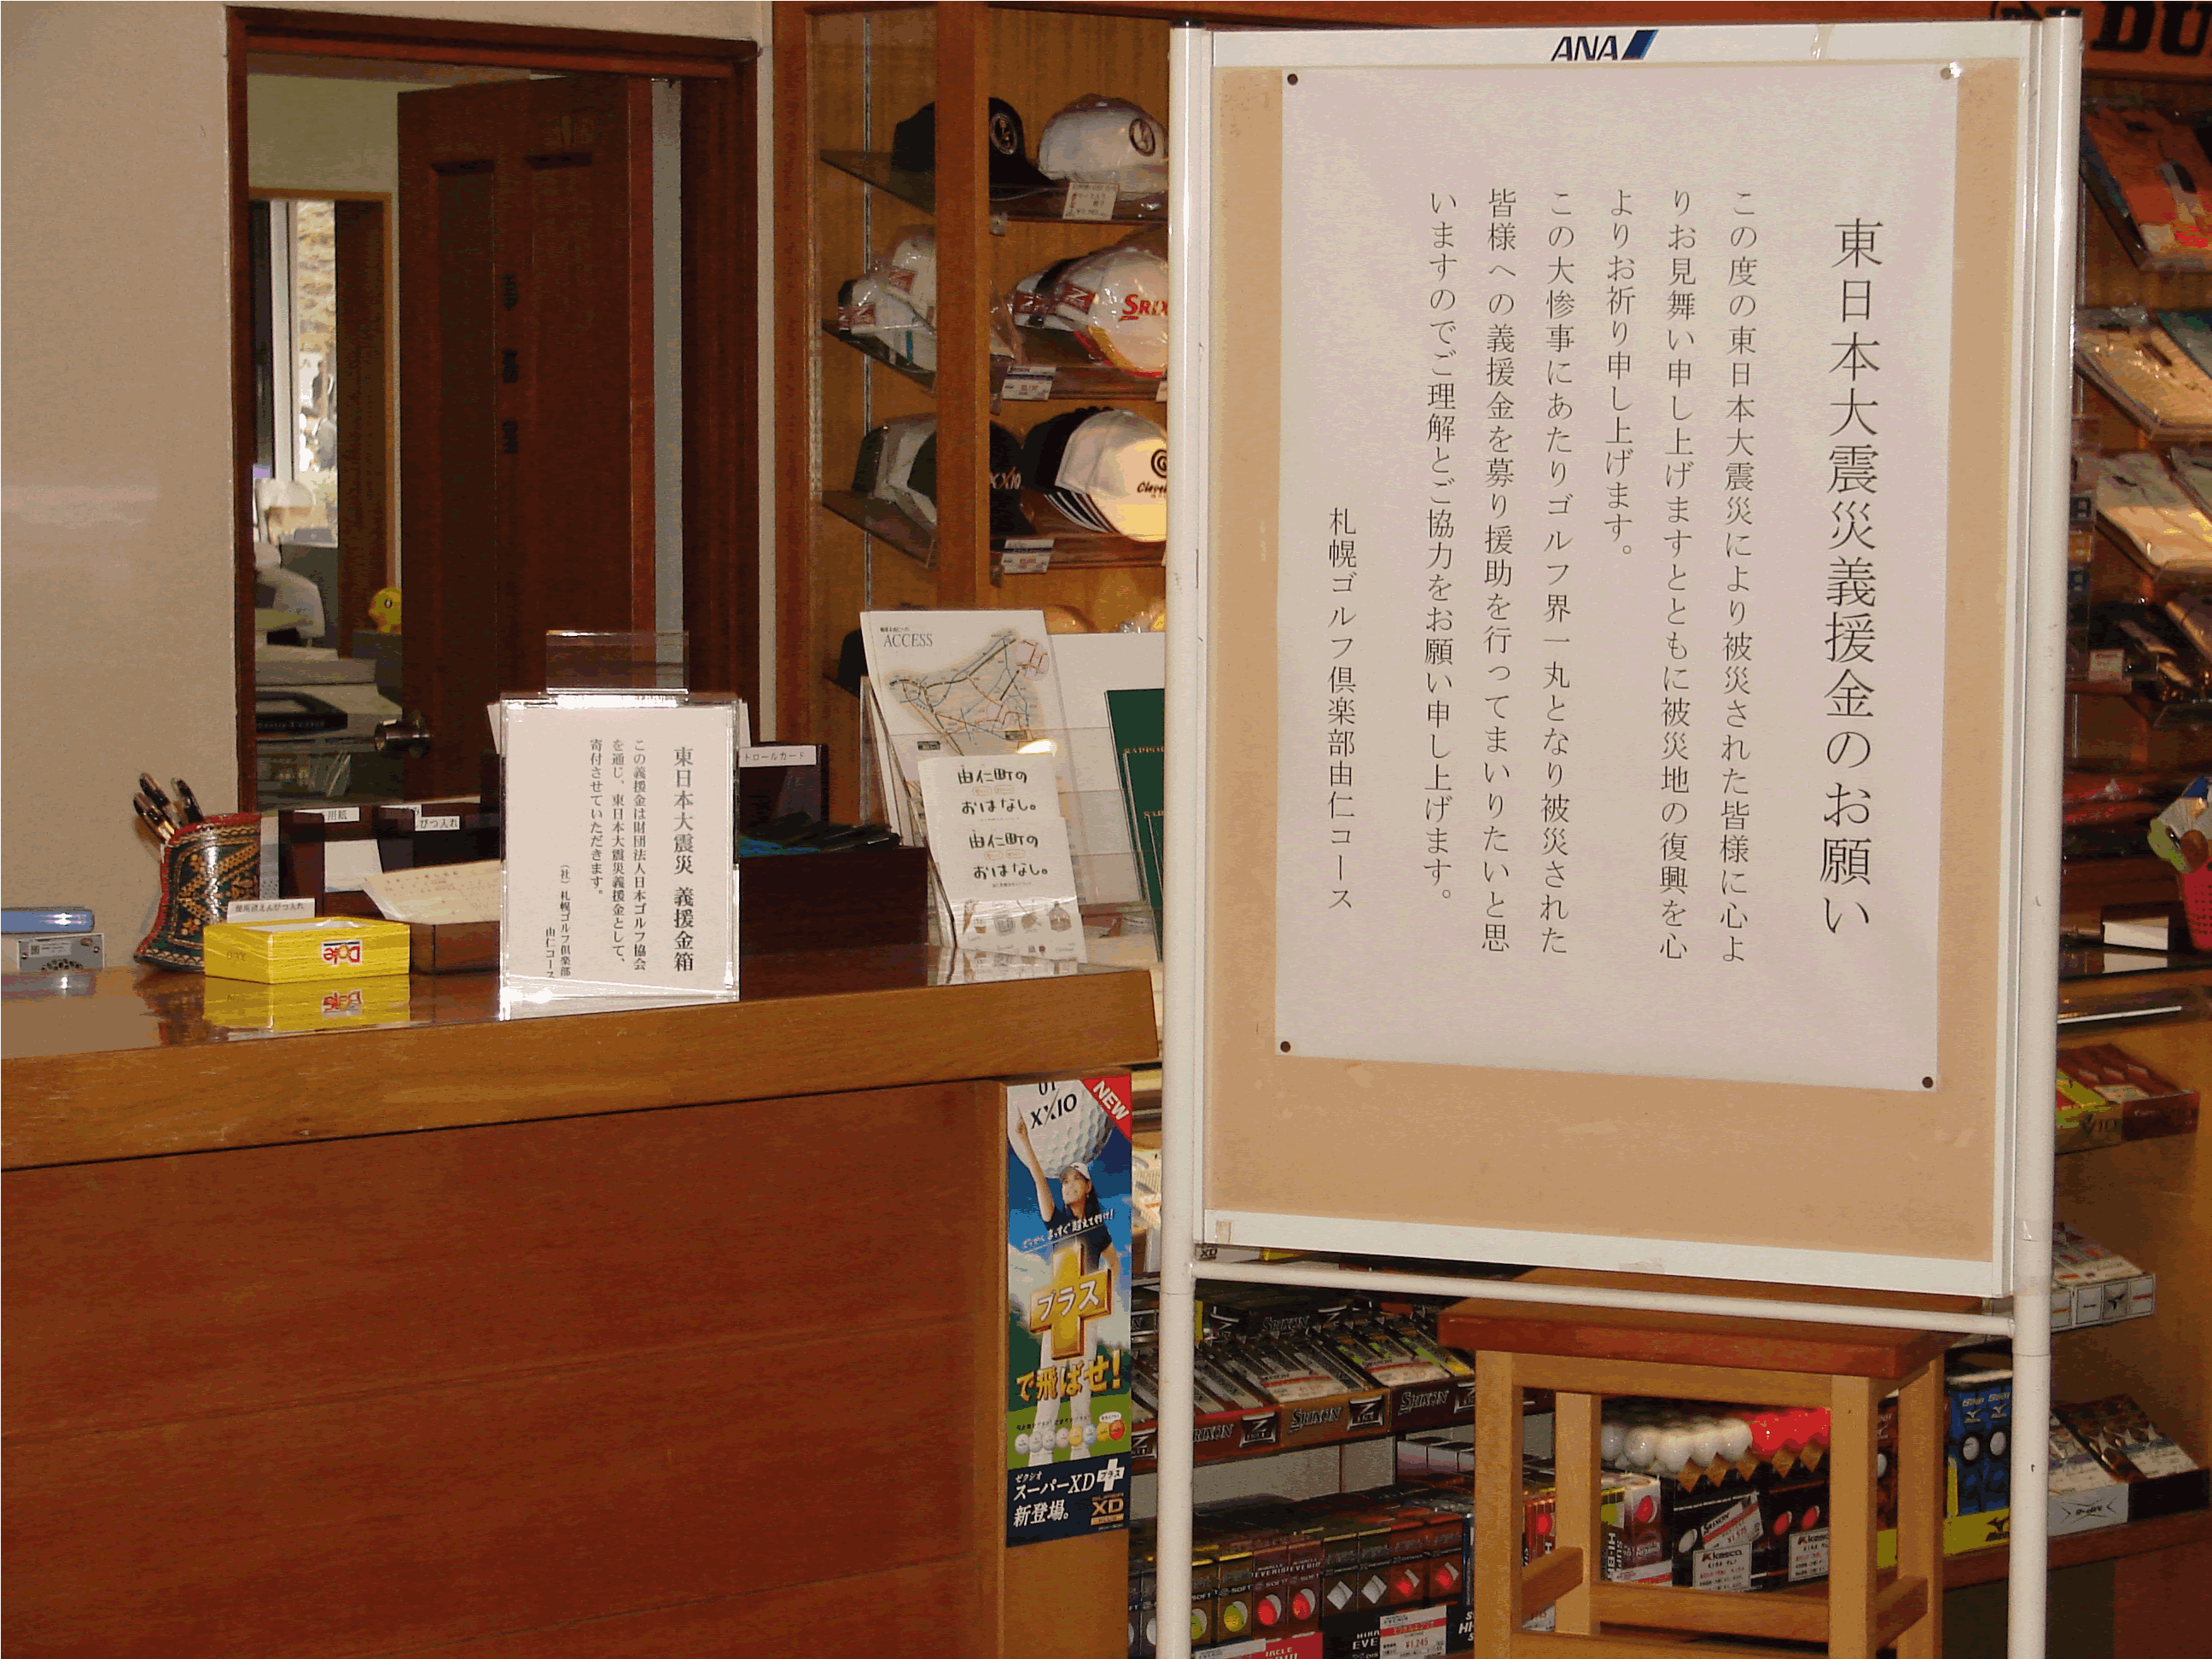 ANA
東日本大震災義援金のお願い
この度の東日本大震災により被災された皆様に心よ
りお見舞い申し上げますとともに被災地の復興を心
よりお祈り申し上げます。
この大惨事にあたりゴルフ界一丸となり被災された
皆様への義援金を募り援助を行ってまいりたいと思
いますのでご理解とご協力をお願い申し上げます。
札幌ゴルフ倶楽部由仁コース
東日本大震災 義援金箱
この義援金は財団法人日本ゴルフ協会
を通じ、東日本大震災義援金として、
寄付させていただきます。
(社)札幌ゴルフ倶楽部
由仁コース
ACCESS
由仁町の
おはなし。
由仁町の
おはなし。
トロールカード
用紙
ぴつ入れ
Dole
SRIX
XXIO
Cleve
DU
XXIO
NEW
プラス
で飛ばせ!
ゼクシオ
スーパーXD プラス
新登場。
XD
SRIXON
SRIXON
SRIXON
SRIXON
Kasco
Kasco
¥1,245